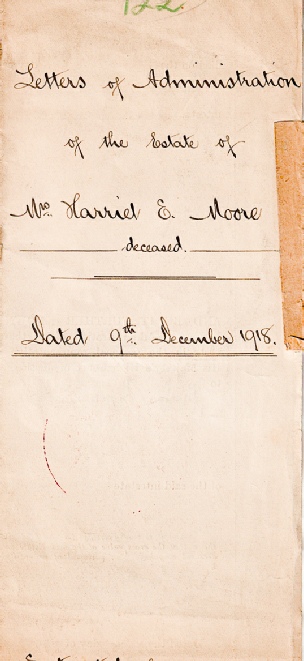 122
Letters of Administration
of the Estate of
Mrs. Harriet E. Moore
deceased.
Dated 9th December 1918.